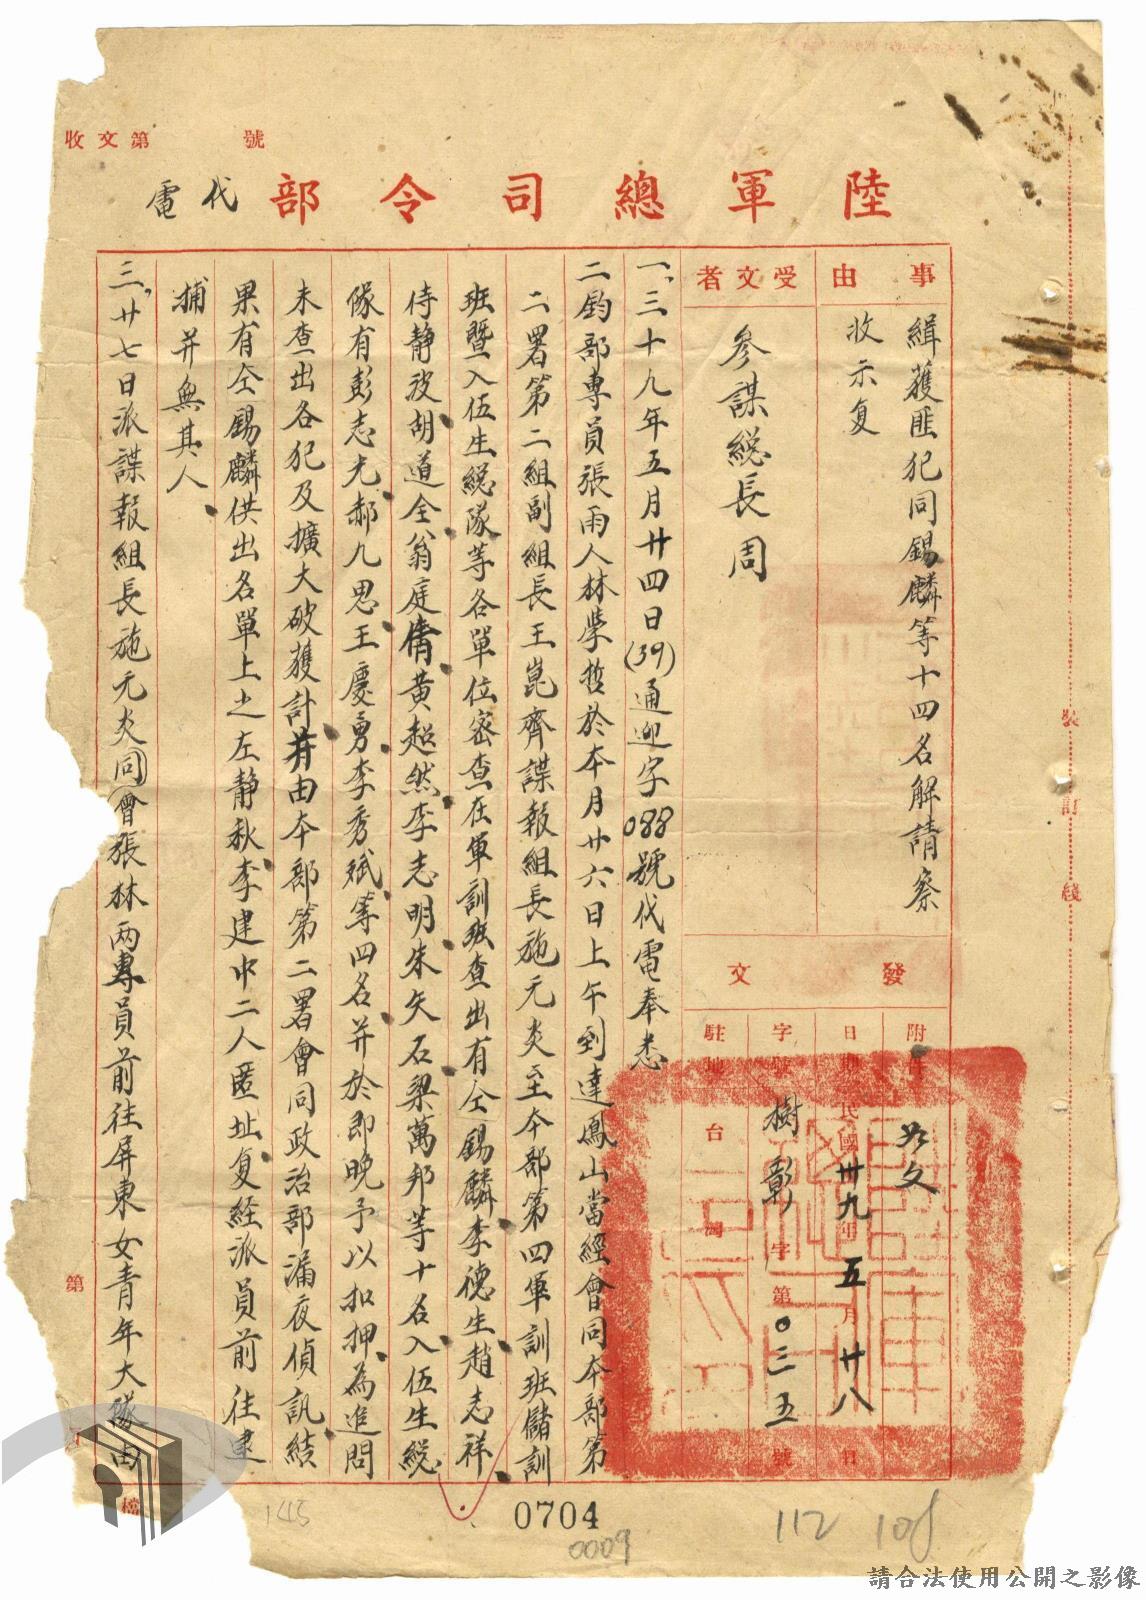 收文第　號
陸軍總司令部代電
事由
緝獲匪犯同錫麟等十四名解請察
收示复
受文者
參謀総長周
發文
附件
日期 民國卅九年五月廿八日
字號 樹彰字第〇三五號
駐地 台灣
一、三十九年五月廿四日(39)通迎字088號代電奉悉
二鈞部專員張雨人林學哲於本月廿六日上午到達鳳山當經會同本部第
二署第二組副組長王崑齊諜報組長施元炎至本部第四軍訓班儲訓
班暨入伍生総隊等各單位密查在軍訓班查出有仝錫麟李德生趙志祥
侍静波胡道全翁庭倩黃超然李志明朱矢石梁萬邦等十名入伍生総
隊有彭志光郝九思王慶勇李秀斌等四名并於即晚予以扣押為進問
未查出各犯及擴大破獲計并由本部第二署會同政治部漏夜偵訊結
果有仝錫麟供出名單上之左靜秋李建中二人匿址复經派員前往逮
捕并無其人
三、廿七日派諜報組長施元炎同會張林兩專員前往屏東女青年大隊由
裝訂綫
第
檔
0704
0009
145
112
108
請合法使用公開之影像